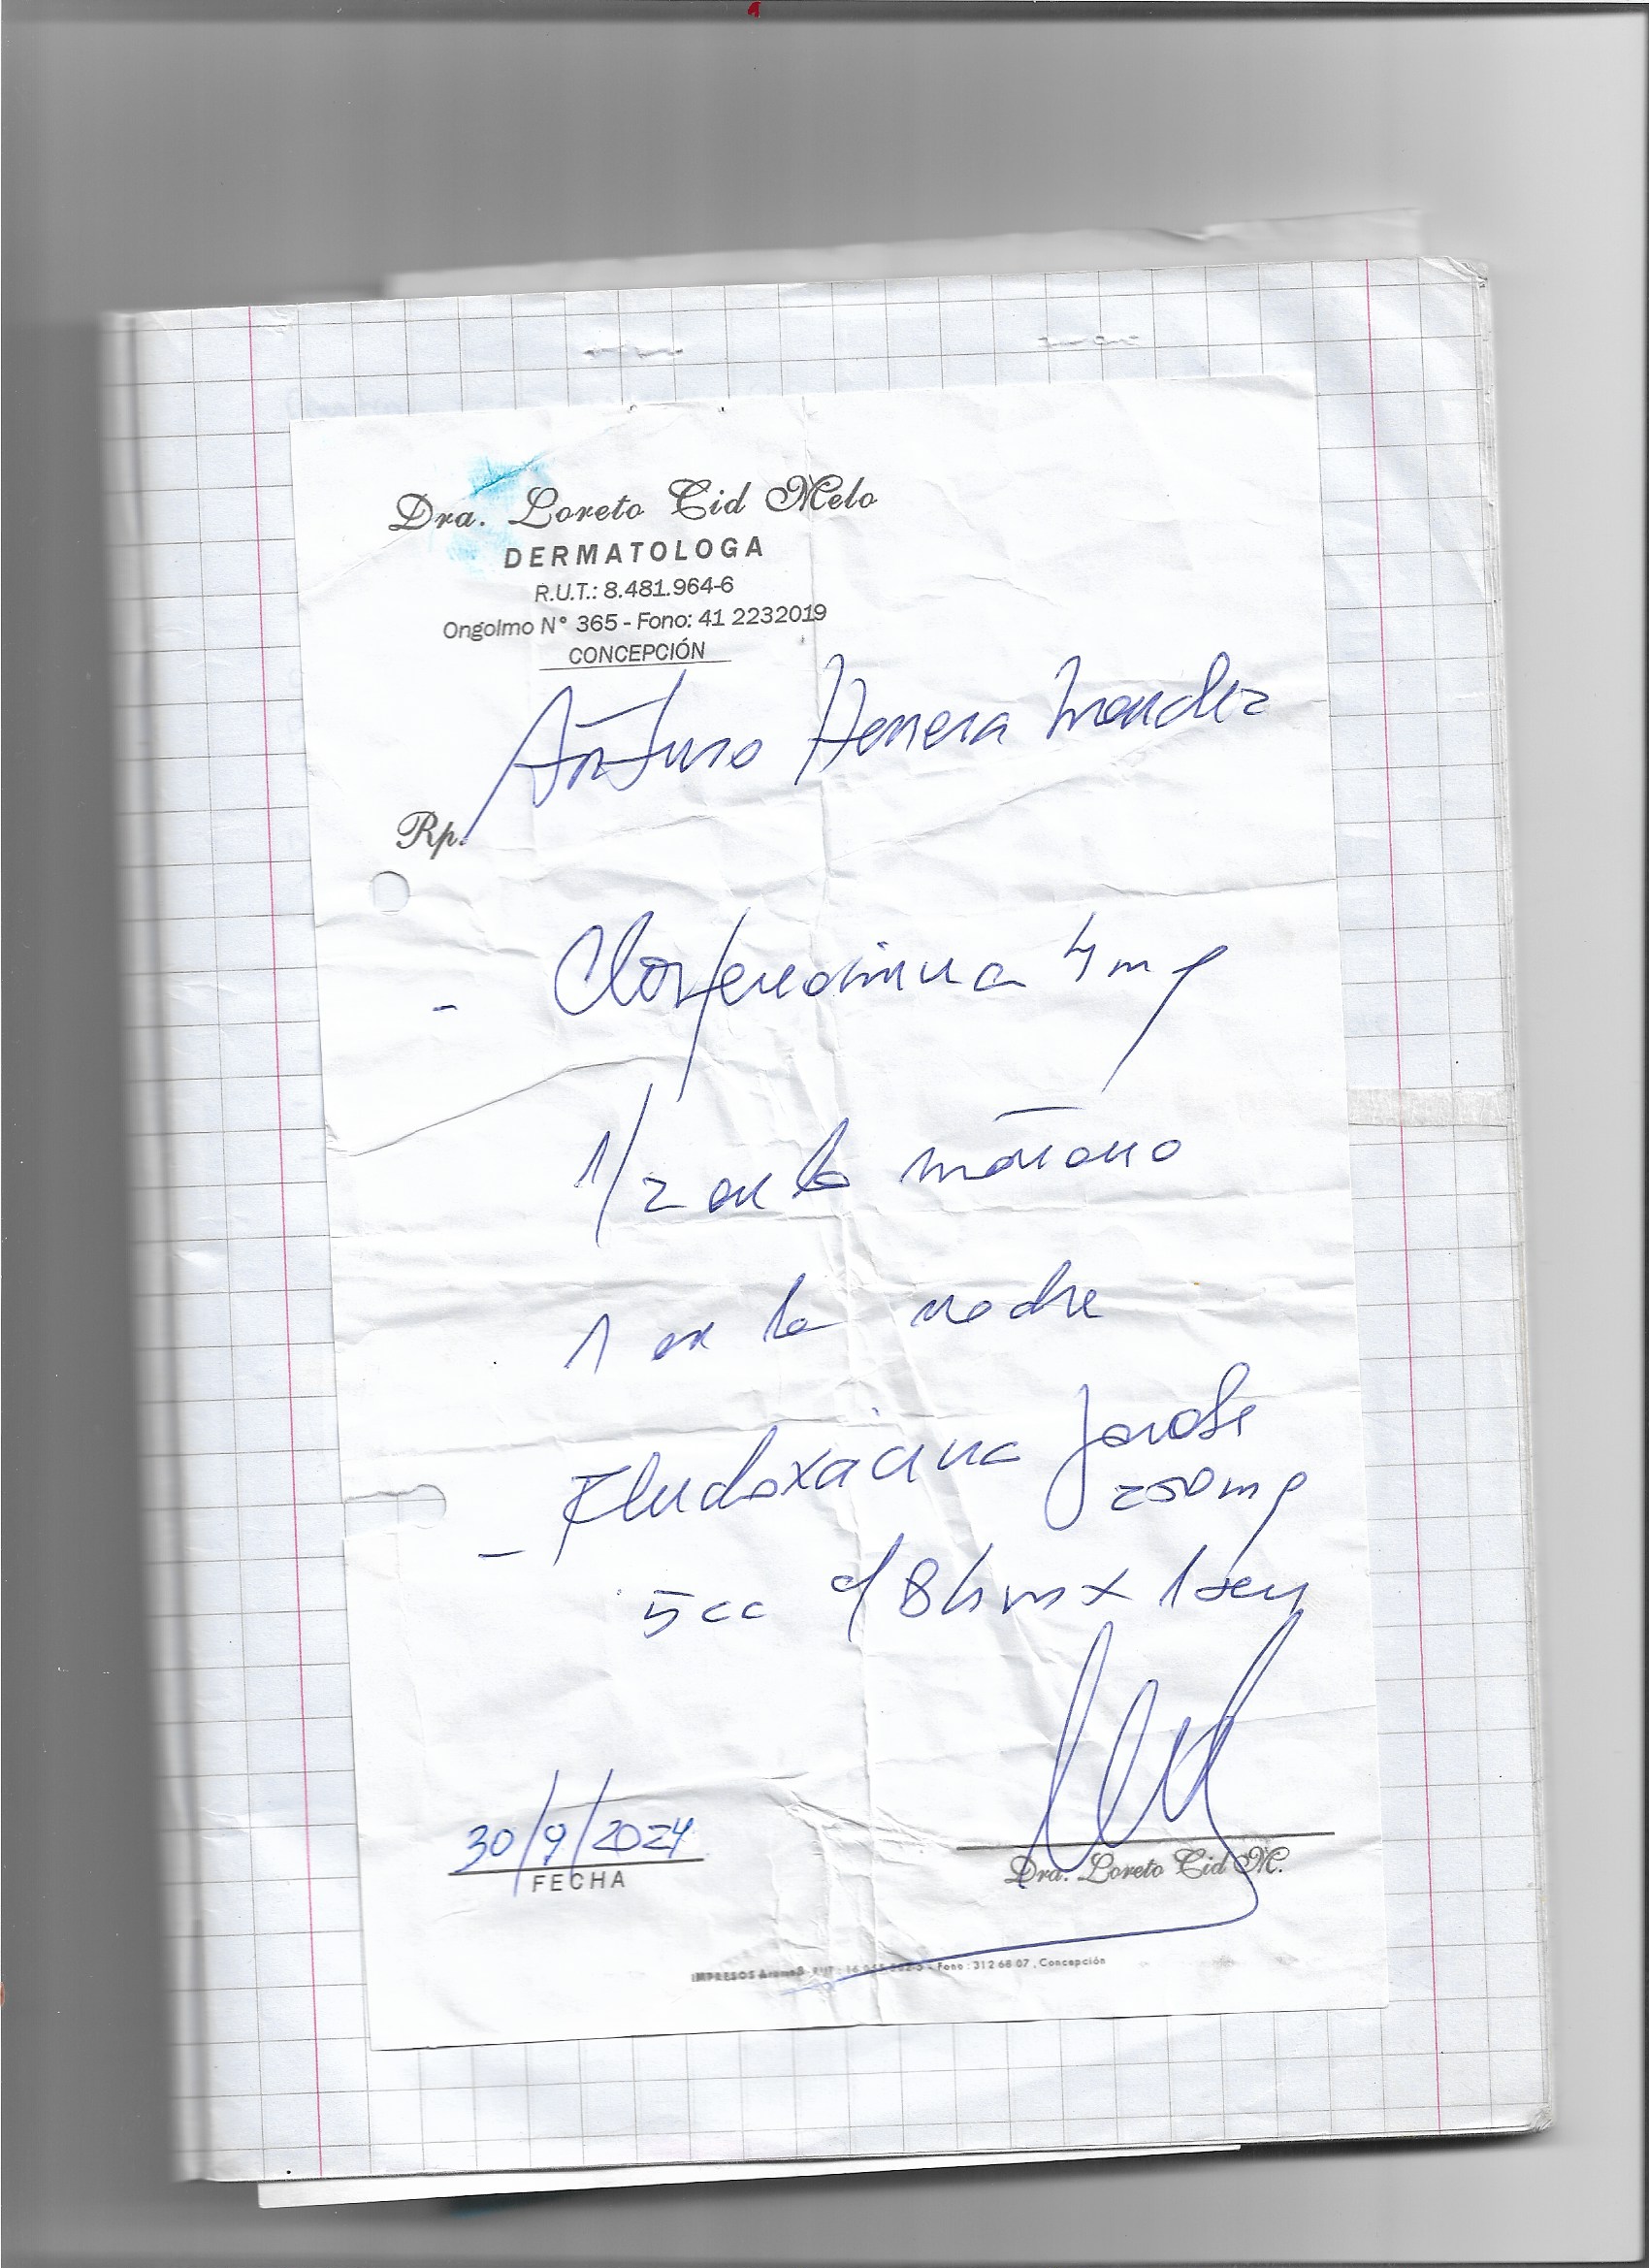 Dra. Loreto Cid Melo
DERMATOLOGA
R.U.T.: 8.481.964-6
Ongolmo N° 365 - Fono: 41 2232019
CONCEPCIÓN
Arturo Herrera Mendez
Rp.
- Clorfenamina 4 mg
1/2 en la mañana
1 en la noche
- Flucloxacina Jarabe
250 mg
5 cc c/ 8 hrs x 1 sem
30/9/2024
FECHA
Dra. Loreto Cid M.
IMPRESOS - Fono : 312 68 07 . Concepción